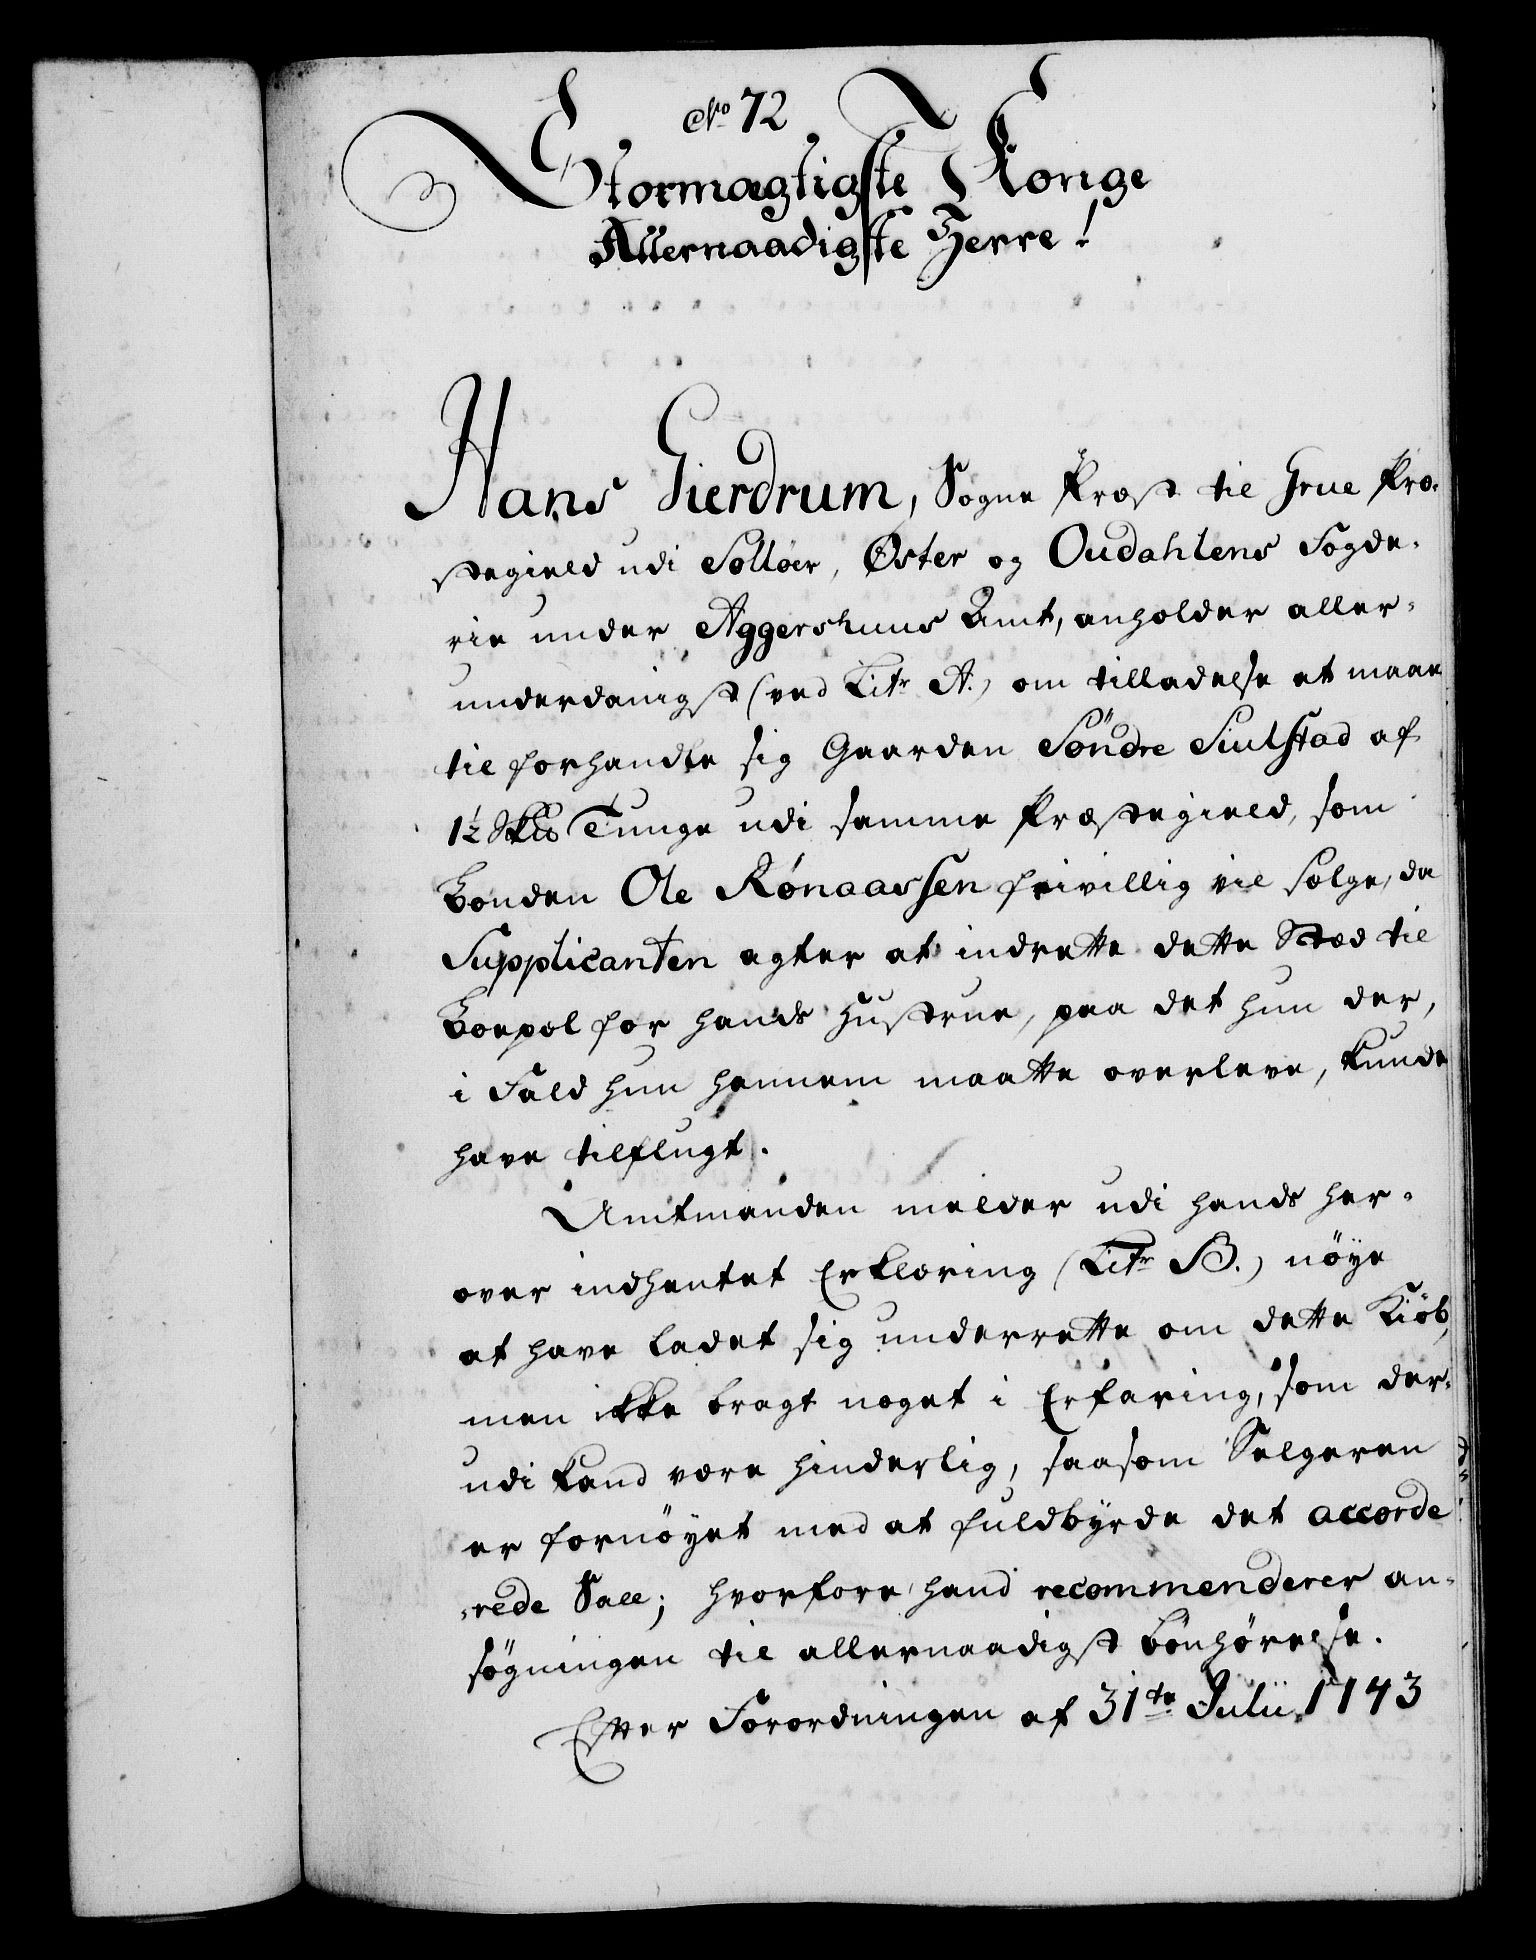 No 72
Stormægtigste Konge
Allernaadigste Herre!
Hans Gierdrum, Sogne Præst til Grue Præ-
stegield udi Solløer, Øster og Oudahlens Fogde-
rie under Aggershuus Amt, anholder aller-
underdanigst (ved Litr A.) om tilladelse at maae
til forhandle sig Gaarden Söndre Siulstad af
1½ Skp Tunge udi samme Præstegield, som
Bonden Ole Rønaassen frivillig vil sælge, da
Supplicanten agter at indrette dette Stæd til
Boepæl for hands Hustrue, paa det hun der,
i Fald hun hannem maatte overleve, kunde
have tilflugt.
Amtmanden melder udi hands her-
over indhentet Erklæring (Litr B.) nöye
at have ladet sig underrette om dette Kiöb,
men ikke bragt noget i Erfaring, som der-
udi kand være hinderlig, saasom Selgeren
er fornöyet med at fuldbyrde det accorde
-rede Sall; hvorfore hand recommenderer an-
søgningen til allernaadigst bönhörelse.
Efter Forordningen af 31te Julii 1743